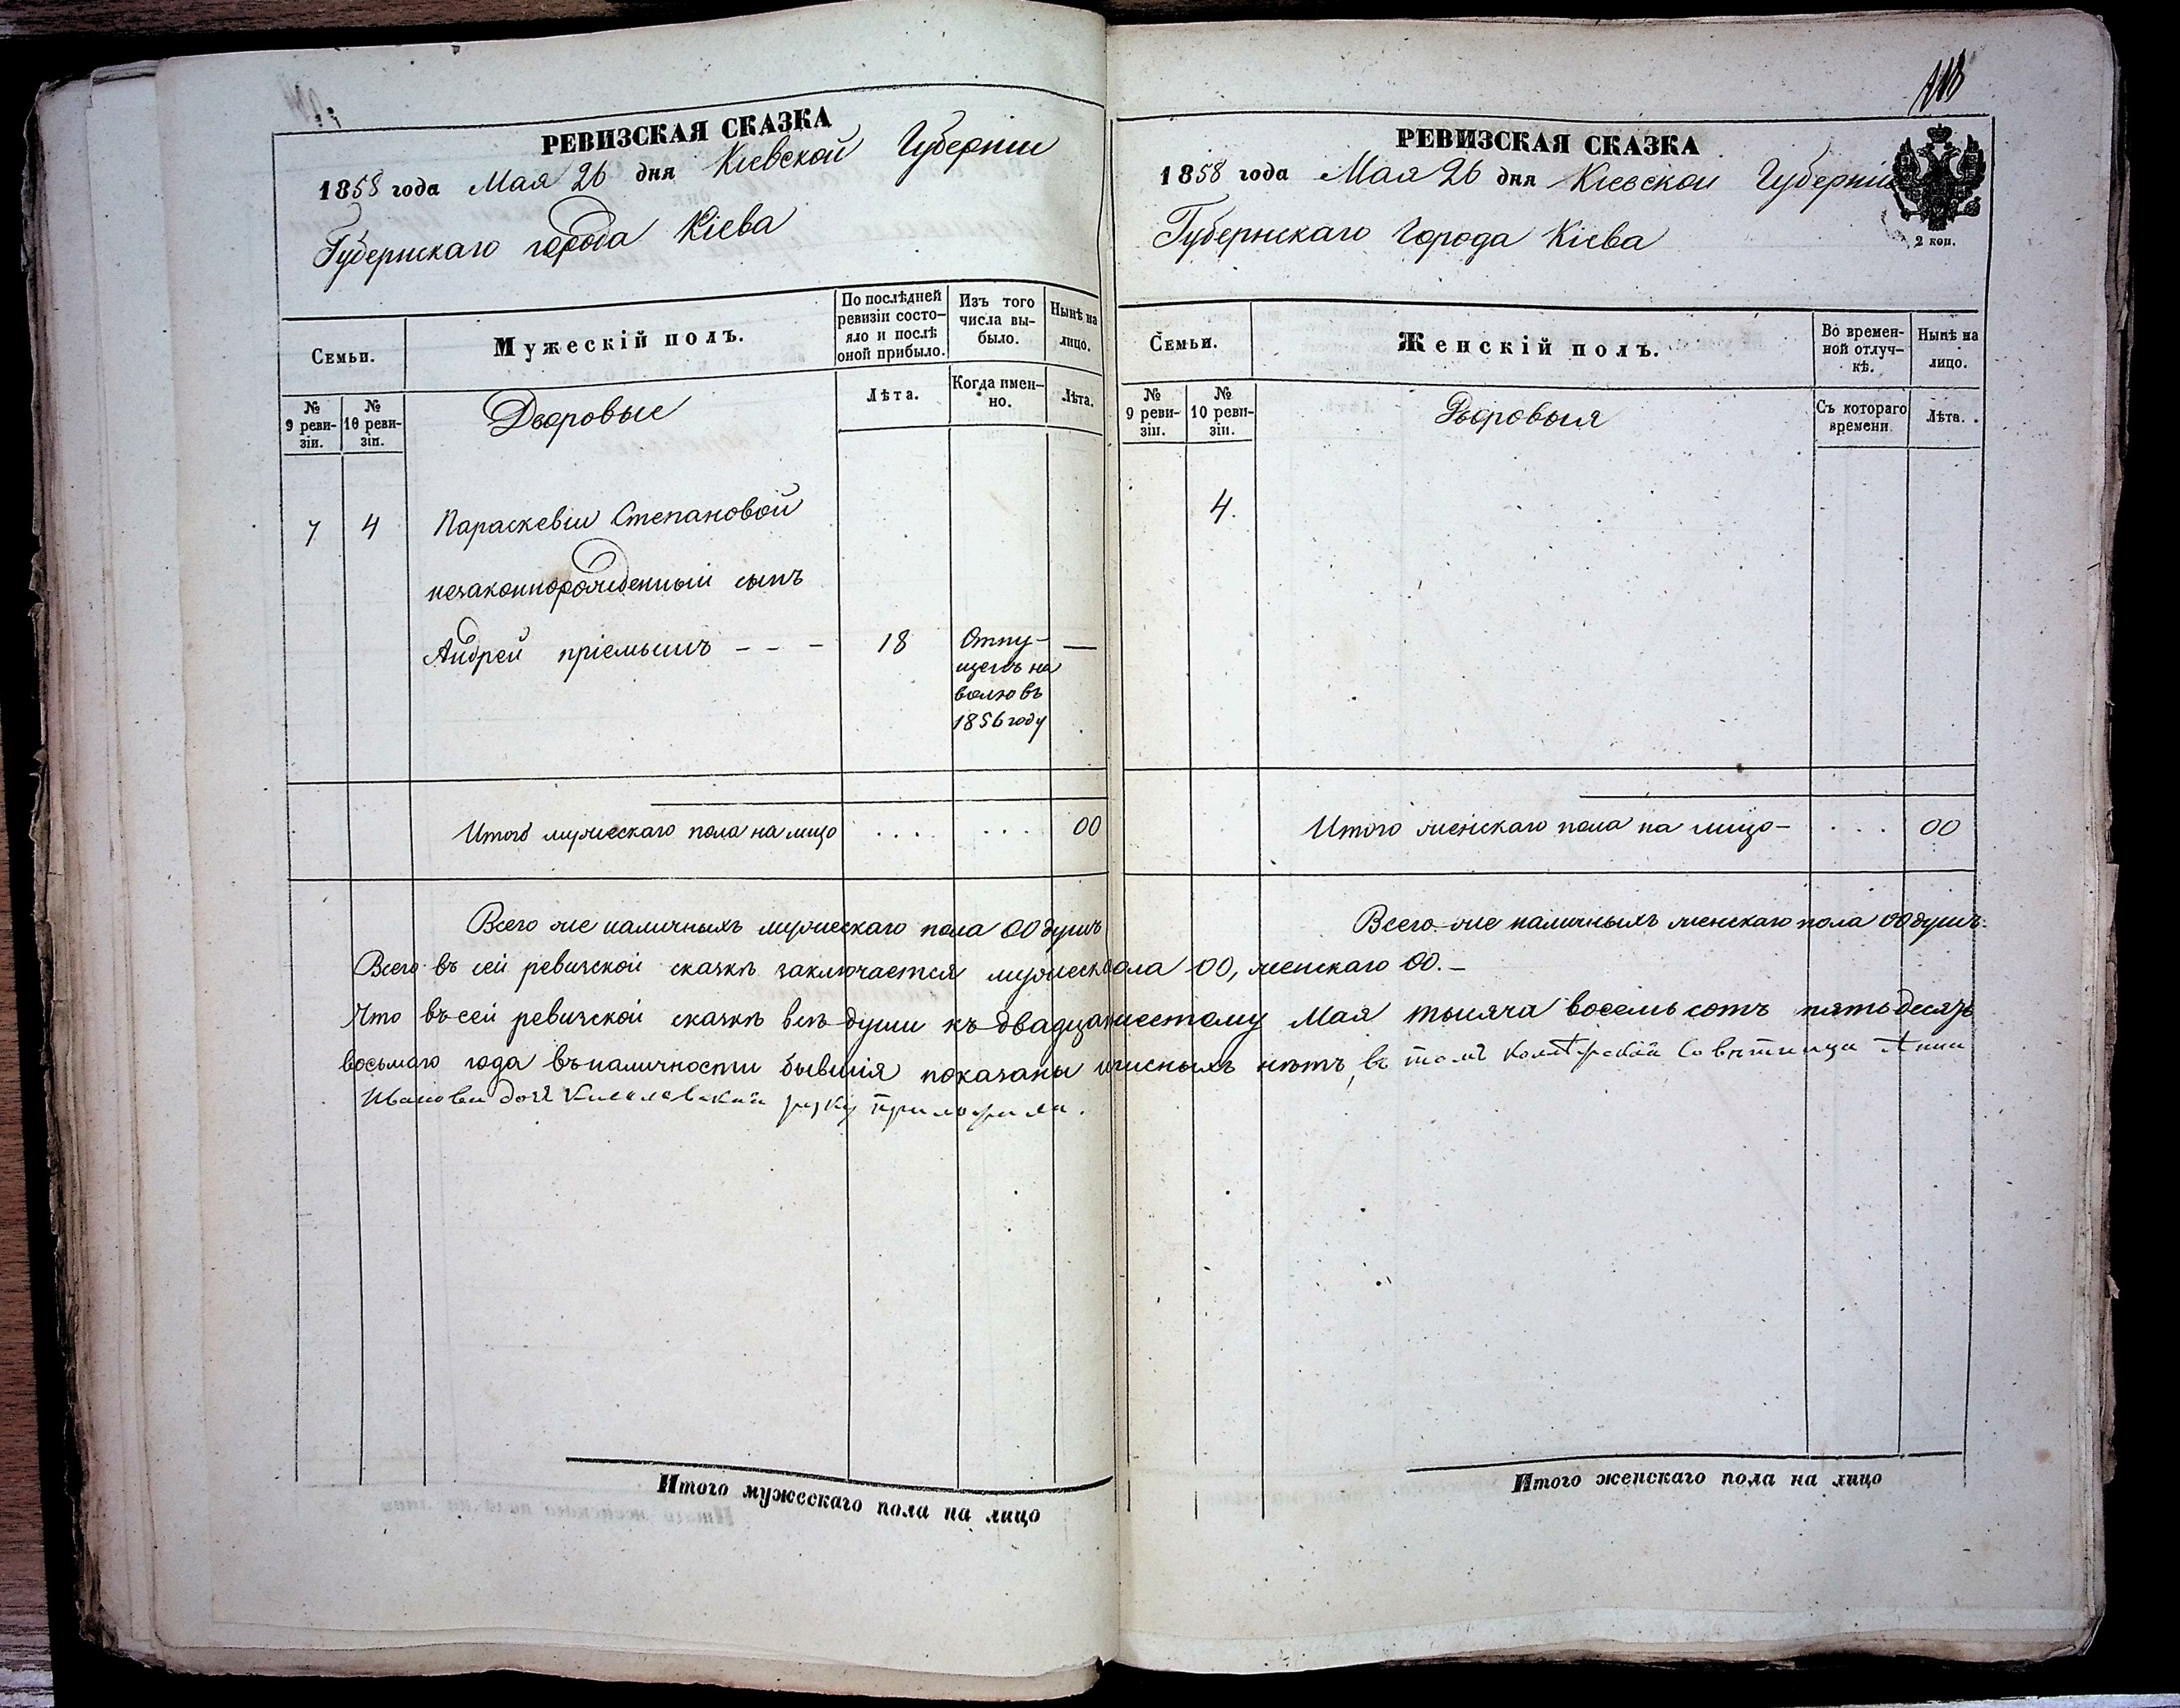 РЕВИЗСКАЯ СКАЗКА
1858 года Мая 26 дня Кіевской Губерніи
Губернскаго города Кіева
Семьи.
Мужескій полъ.
По послѣдней ревизіи состо-
яло и послѣ
оной прибыло.
Изъ того
числа вы-
было.
Нынѣ на
лицо.
№
9 реви-
зіи.
№
10 реви-
зіи.
Дворовые
Лѣта.
Когда имен-
но.
Лѣта.
7 4 Параскевіи Степановой
незаконнорожденный сынъ
Андрей пріемышъ - - - 18 Отпу- —
щенъ на
волю въ
1856 году
Итого мужескаго пола на лицо .... ... 00
Всего же наличныхъ мужескаго пола 00 душъ
РЕВИЗСКАЯ СКАЗКА
1858 года Мая 26 дня Кіевской Губерніи
2 коп.
Губернскаго Города Кіева
Семьи.
Женскій полъ.
Во времен-
ной отлуч-
кѣ.
Нынѣ на
лицо.
№
9 реви-
зіи.
№
10 реви-
зіи.
Дворовыя
Съ котораго
времени
Лѣта.
4.
Итого женскаго пола на лицо - ... 00
Всего же наличныхъ женскаго пола 00 душъ.
Всего въ сей ревизской сказкѣ заключается мужеск пола 00, женскаго 00. -
Что въ сей ревизской сказкѣ всѣ души къ двадцать шестому Мая тысяча восемь сотъ пятьдесятъ
восьмаго года въ наличности бывшія показаны и писныхъ нѣтъ, въ томъ Советница Анна
Иванова руку приложила.
Итого мужескаго пола на лицо
Итого женскаго пола на лицо